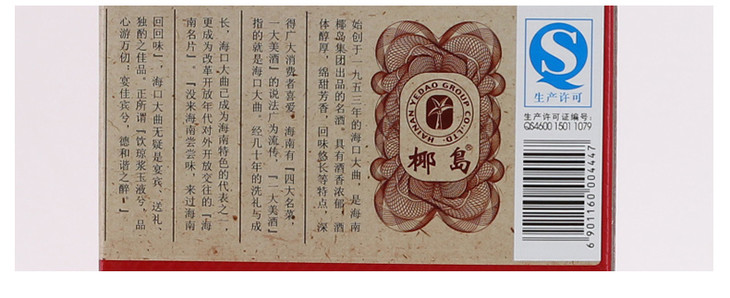 始创于一九五三年的海口大曲，是海南
椰岛集团出品的名酒。具有酒香浓郁，酒
体醇厚，绵甜芳香，回味悠长等特点，深
得广大消费者喜爱。 海南有“四大名菜，
一大美酒”的说法广为流传，“一大美酒”
指的就是海口大曲。经几十年的洗礼与成
长，海口大曲已成为海南特色的代表之一，
更成为改革开放年代对外开放交往的“海
南名片”，“没来海南尝尝味，来过海南
回回味”，海口大曲无疑是宴宾、送礼、
独酌之佳品。正所谓“饮琼浆玉液兮，品
心游万仞；宴佳宾兮，德和谐之醉。”
HAINAN YEDAO GROUP CO.,LTD.
椰岛®
QS
生产许可
生产许可证编号：
QS4600 1501 1079
6 901160 004447